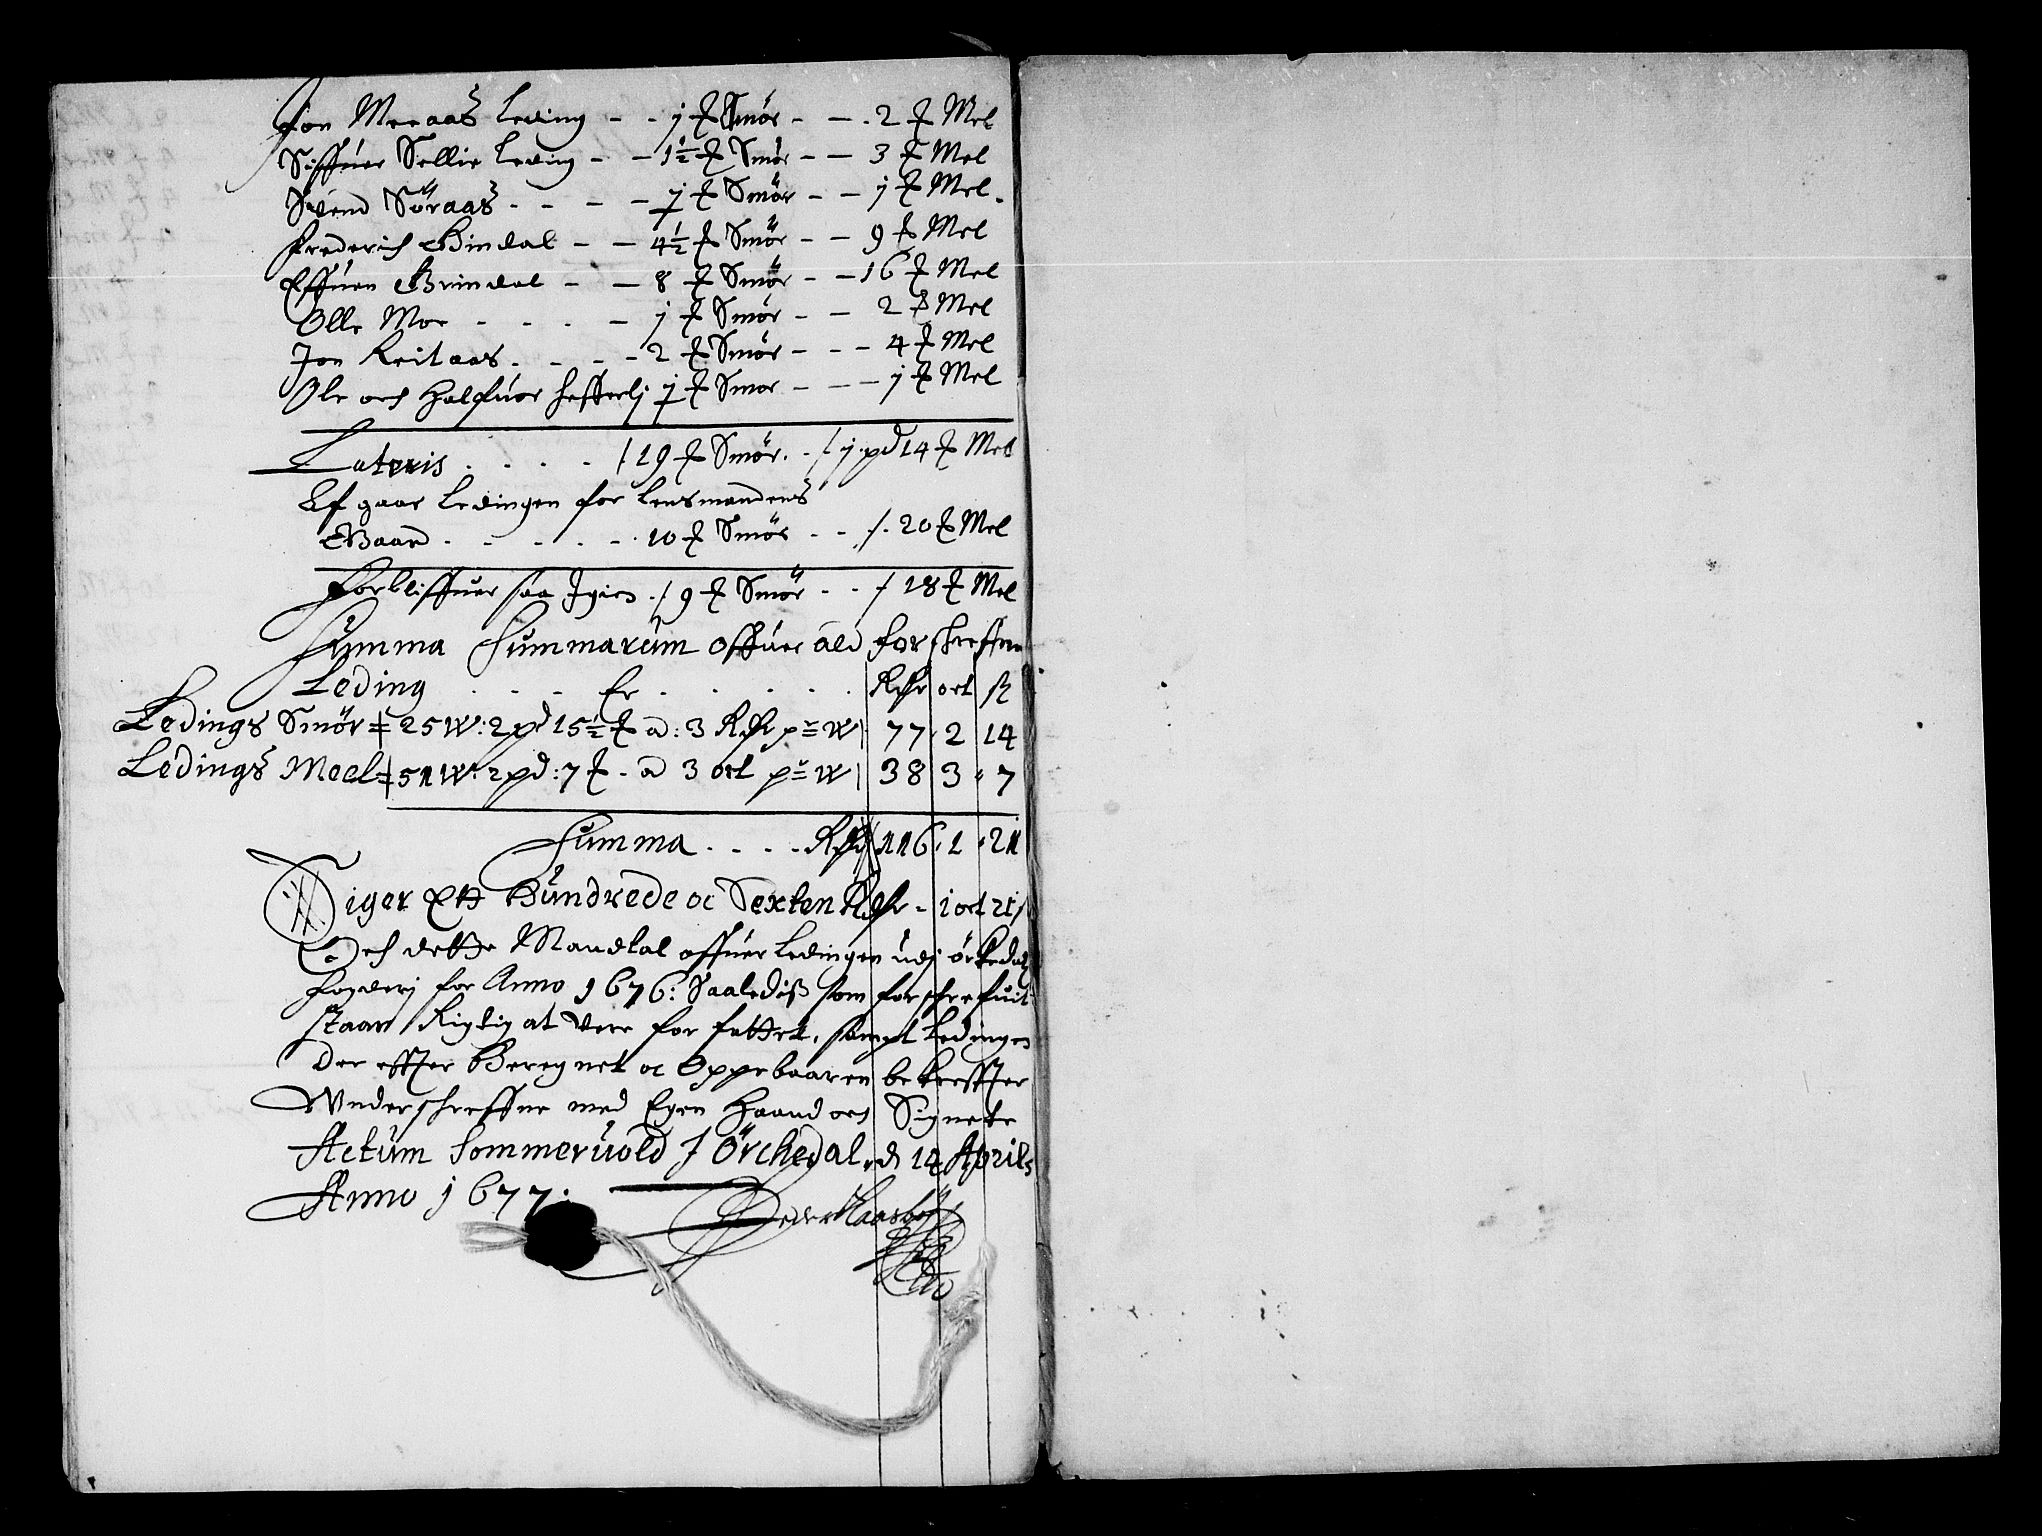 Jon Meraas Leding - - j ℔ Smör - - 2 ℔ Mel
Siffuer Sellie Leding - - 1½ ℔ Smör - - 3 ℔ Mel
Svend Söraas - - - - ɉ ℔ Smör - - j ℔ Mel
Frederich Grindal - - 4½ ℔ Smör - - 9 ℔ Mel
Effuen Grindal - - 8 ℔ Smör - - 16 ℔ Mel
Olle Moe - - - - j ℔ Smör - - 2 ℔ Mel
Jon Reitaas - - - - 2 ℔ Smör - - - 4 ℔ Mel
Ole och Halfuor Hefferlj ɉ ℔ Smör - - - j ℔ Mel
Lateris . . . . / 19 ℔ Smör . . / j pd 14 ℔ Mel
Af gaar Ledingen for Lensmandens
Gaard . . . . . 10 ℔ Smör - - /. 20 ℔ Mel
Forbliffuer saa Igien ./ 9 ℔ Smör - - / 18 ℔ Mel
Summa Summarum offuer ald forschreffne
Leding . . . Er . . . . . Rdlr ort ß
Ledings Smör 25 W: 2 pd 15½ ℔ a: 3 Rdlr pr W 77 2 14
Ledings Meel 51 W: 2 pd: 7 ℔ - a 3 ort pr W 38 3 7
Summa . . . . Rdlr 116 1 21
Siger Ett Hundrede oc Sexten Rdlr - 1 ort 21 ß
Och dette Mandtal offuer Ledingen udj örkedals
Fogderj for Anno 1676: Saalediß som forschrefuit
staar Rigtig at Vere for fattet, sampt Ledingen
der effter Beregnet oc Oppebaaren bekreffter
Underschreffne med Egen Haand och Signete
Actum Sommeruold J Örchedal d 14 Aprils
Anno 1677.
Peder Haasböl